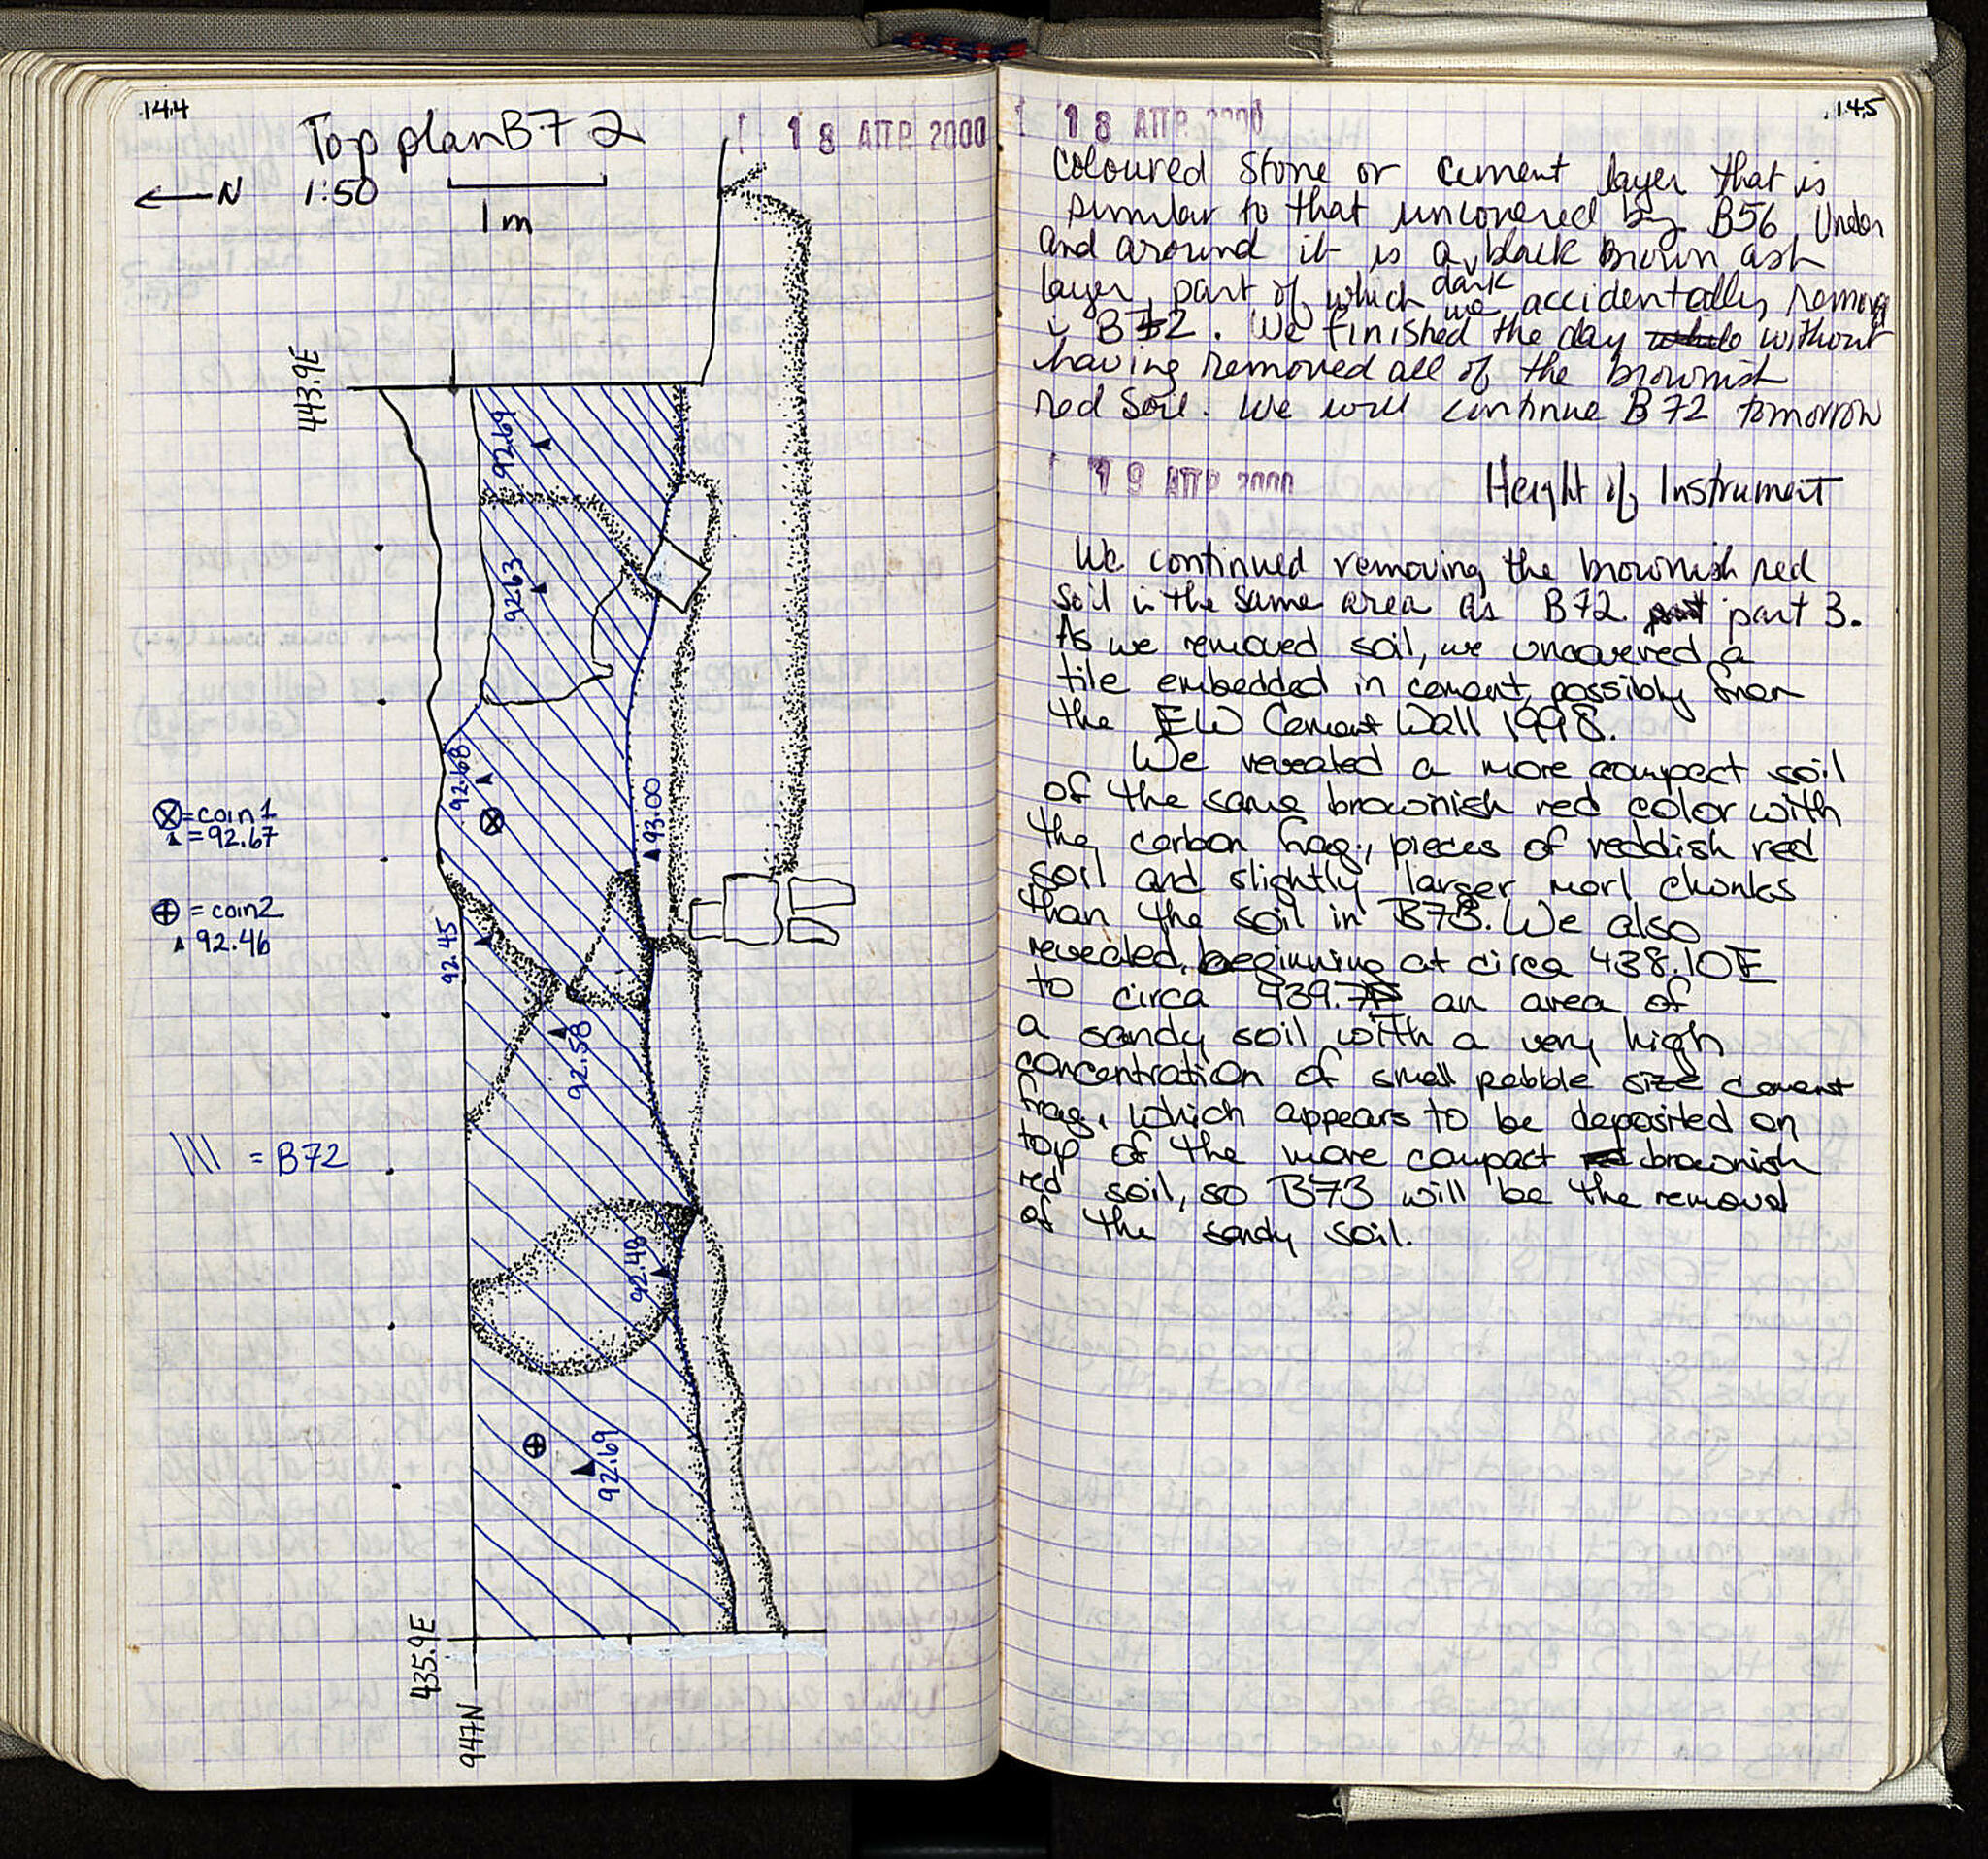 144
Top plan B72
1 8 ΑΠΡ. 2000
←N 1:50
1m
443.9E
92.69
92.63
92.68
93.00
⊗=coin1
▲=92.67
⊕ = coin2
▲ 92.46
92.45
92.58
\\\ = B72
92.48
92.69
435.9E
947N
145
1 8 ΑΠΡ. 2000
coloured stone or cement layer that is
similar to that uncovered by B56. Under
and around it is a dark black brown ash
layer, part of which we accidentally
B72. We finished the day without
having removed all of the brownish
red soil. We will continue B72 tomorrow
1 9 ΑΠΡ 2000
Height of Instrument
We continued removing the brownish red
soil in the same area as B72 part 3.
As we removed soil, we uncovered a
tile embedded in cement, possibly from
the EW Cement Wall 1998.
We revealed a more compact soil
of the same brownish red color with
the carbon frag., pieces of reddish red
soil and slightly larger marl chunks
than the soil in B73. We also
revealed, beginning at circa 438.10E
to circa 439. an area of
a sandy soil with a very high
concentration of small pebble size cement
frag, which appears to be deposited on
top of the more compact brownish
red soil, so B73 will be the removal
of the sandy soil.